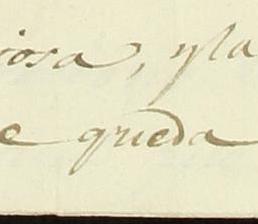 iosa, y la
e queda